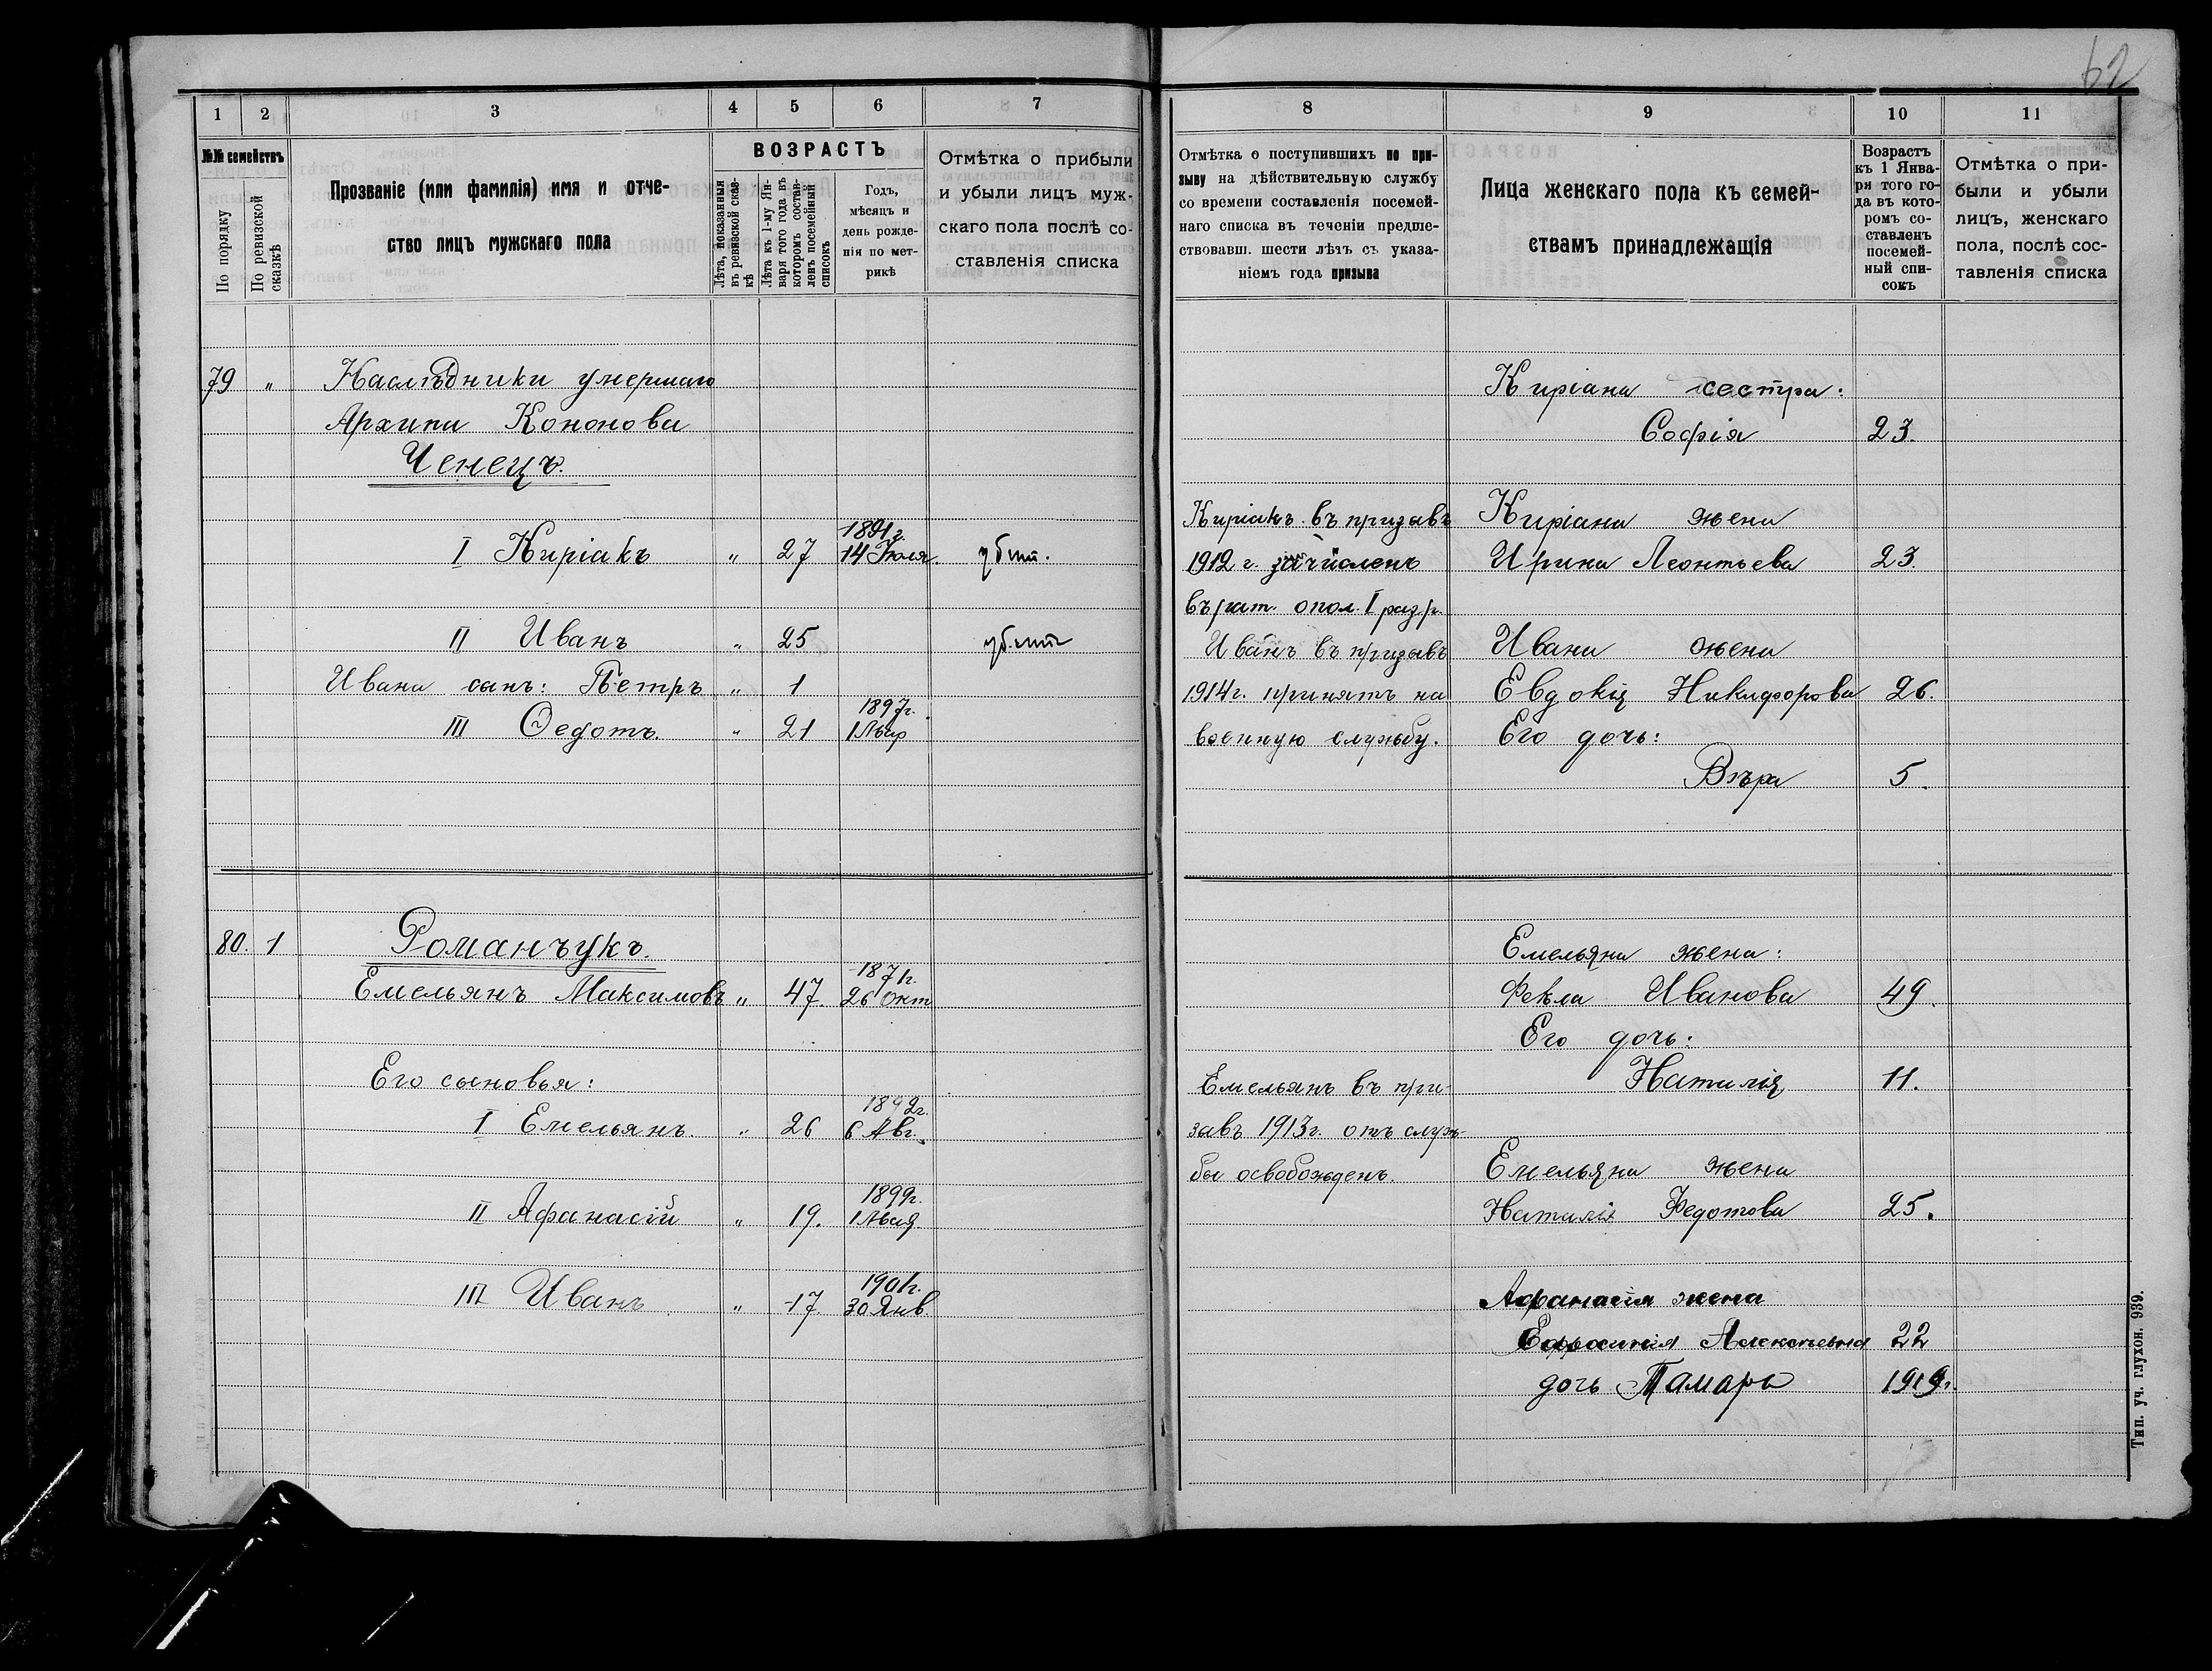 62
1 2 3 4 5 6 7
№№ семействъ
По порядку
По ревизской сказкѣ
Прозваніе (или фамилія) имя и отче-
ство лицъ мужскаго пола
ВОЗРАСТЪ
Лѣта, показанныя
въ ревизской сказ-
кѣ
Лѣта къ 1-му Ян-
варя того года въ
которомъ состав-
ленъ посемейный
списокъ
Годъ,
мѣсяцъ и
день рожде-
нія по мет-
рикѣ
Отмѣтка о прибыли
и убыли лицъ муж-
скаго пола послѣ со-
ставленія списка
79 „ Наслѣдники умершаго
Архипа Кононова
Ченецъ.
1891 г.
I Киріакъ „ 27 14 Іюля. убит.
II Иванъ „ 25 убит
Ивана сынъ: Петръ „ 1
1897г.
III Ѳедотъ. „ 21 1 Мар
80. 1 Романчукъ.
1871г.
Емельянъ Максимовъ „ 47. 26 Окт
Его сыновья:
1892г.
I Емельянъ. „ 26 6 Авг.
1899г.
II Афанасій „ 19. 1 Мая
1901г.
III Иванъ „ 17 30 Янв.
8 9 10 11
Отмѣтка о поступившихъ по при-
зыву на дѣйствительную службу
со времени составленія посемей-
наго списка въ теченіи предше-
ствовавш. шести лѣтъ съ указа-
ніемъ года призыва
Лица женскаго пола къ семей-
ствамъ принадлежащія
Возрастъ
къ 1 Янва-
ря того го-
да въ кото-
ромъ со-
ставленъ
посемей-
ный спи-
сокъ
Отмѣтка о при-
были и убыли
лицъ, женскаго
пола, послѣ сос-
тавленія списка
Киріана сестра:
Софія 23.
Киріакъ въ призывъ Киріана жена
1912 г. зачисленъ Ирина Леонтьева 23
въ рат. опол. I разр.
Иванъ въ призывъ Ивана жена
1914г. принятъ на Евдокія Никифорова 26.
военную службу. Его дочь:
Вѣра 5.
Емельяна жена:
Фекла Иванова 49.
Его дочь:
Емельянъ въ при- Наталія 11.
зывъ 1913г. отъ служ-
бы освобожденъ. Емельяна жена
Наталія Федотова 25.
Афанасія жена
Ефросинія Алексѣевна 22
дочь Тамара 1919г.
Тип. уч. глухон. 939.